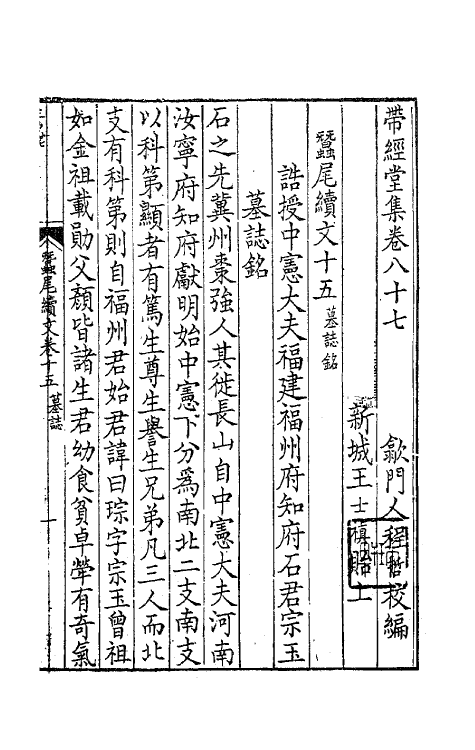 帶經堂集卷八十七
歙門人程哲校編
新城王士禛貽上
蠶尾續文十五 墓誌銘
誥授中憲大夫福建福州府知府石君宗玉
墓誌銘
石之先冀州棗強人其徙長山自中憲大夫河南
汝寧府知府獻明始中憲下分爲南北二支南支
以科第顯者有篤生尊生譽生兄弟凡三人而北
支有科第則自福州君始君諱曰琮字宗玉曾祖
如金祖載勛父顏皆諸生君幼食貧卓犖有奇氣
蠶尾續文卷十五 墓誌